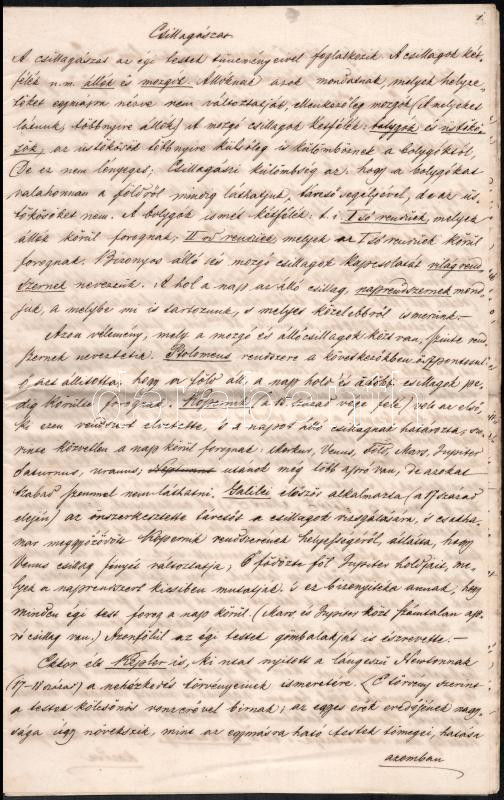 1.
Csillagászat
A csillagászat az égi testek tüneményeivel foglalkozik. A csillagok két-
félék u.m. álló és mozgók. Állóknak azok mondatnak, melyek helyze-
töket egymásra nézve nem változtatják, ellenkezőleg mozgók. (A melyeket
látunk, többnyire állók) A mozgó csillagok kétfélék: bolygók és üstökö-
sök, az üstökösök többnyire külsőleg is különböznek a bolygóktól,
De ez nem lényeges; Csillagászi külömbség az: hogy a bolygókat
valahonnan a földről mindig láthatjuk, távcső segélyével, de az üs-
tökösöket nem. A bolygók ismét kétfélék: t.i. I ső rendűek, melyek
álló körül forognak; II od rendűek, melyek az I ső rendűek körül
forognak. Bizonyos álló és mozgó csillagok kapcsolatát világrend-
szernek nevezzük. A hol a nap az álló csillag, naprendszernek mond-
juk, a melybe mi is tartozunk, s melyet közelebbről ismerünk.—
Azon vélemény, mely a mozgó és álló csillagok közt van, szinte rend-
szernek neveztetik. Ptolomeus rendszere a következőkben összpontosul:
Ő azt állította, hogy a föld áll, a nap hold és a többi csillagok pe-
dig körülte forognak. Kopernik a 15 század vége felé volt az első
ki ezen rendszert elvetette, s a napot álló csillagnak határozta, sze-
rinte közvetlen a nap körül forognak: Merkur, Venus, Föld, Mars, Jupiter
Saturnus, uranus, Neptunus utánok még több apró van, de azokat
szabad szemmel nem láthatni. Galilei először alkalmazta (a 17 század
elején) az önszerkesztette távcsőt a csillagok vizsgálására, s csakha-
mar meggyőződött Kopernik rendszerének helyességéről, állítta, hogy
Venus csillag fényét változtatja; Ő födözte föl Jupiter holdjait, me-
lyek a naprendszert kicsiben mutatják s ez bizonyítéka annak, hogy
minden égi test forog a nap körül. (Mars és Jupiter közt számtalan ap-
ró csillag van.) Azonfölül az égi testek gömbalakját is észrevette.—
is, ki utat nyitott a lángeszű Newtonnak
(17-18 század) a nehézkedés törvényeinek ismeretére. E törvény szerint
a testek kölcsönös vonzerővel birnak; az egyes erők eredőjének nagy-
sága úgy növekszik, mint az egymásra ható testek tömegei, hatása
azomban